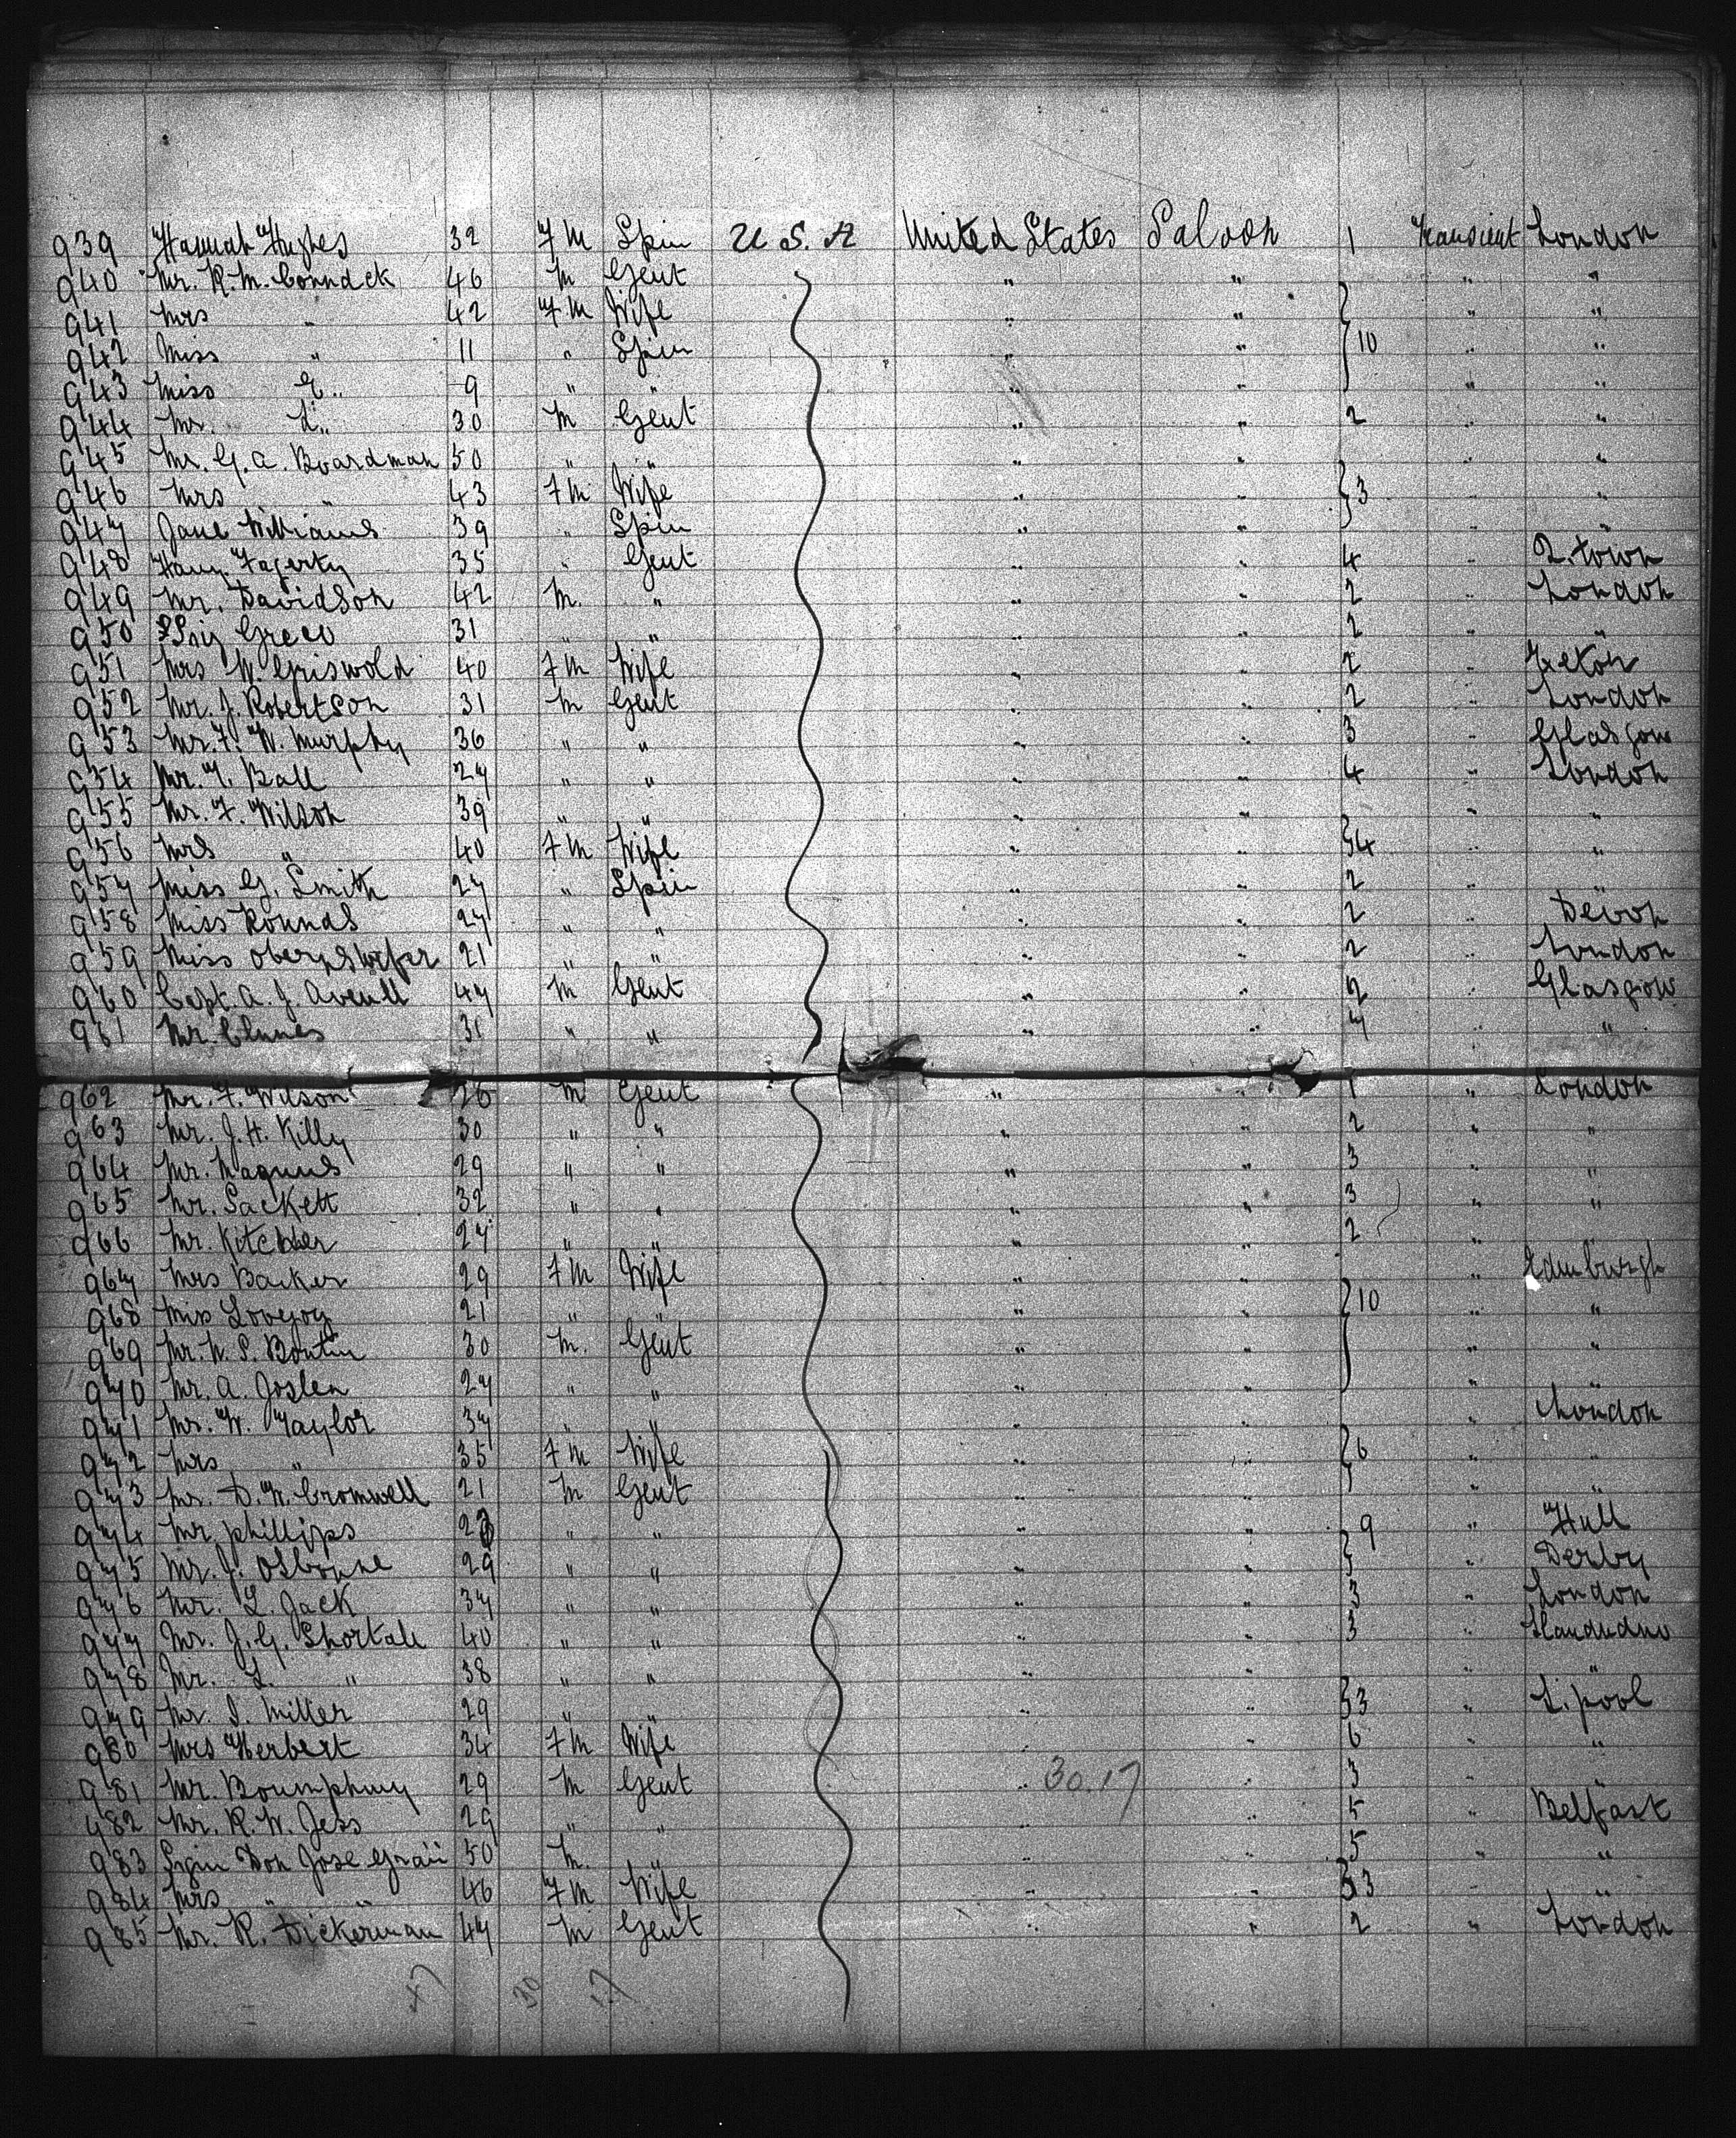 939 Hannah Hughes 32 Fm Spin U.S.A United States Saloon 1 Transient London
940 Mr. R. M. Conndck 46 m Gent " " " "
941 Mrs " 42 Fm Wife " " " "
942 Miss " 11 " Spin " " } 10 " "
943 Miss G. " 9 " " " " " "
944 Mr. L " 30 m Gent " " 2 "
945 Mr. G. A. Boardman 50 " " " " " "
946 Mrs " 43 Fm Wife " " } 3 "
947 Jane Williams 39 " Spin " " "
948 Hann Fagerty 35 " Gent " 4 " Q. town
949 Mr. Davidson 42 m. " " " 2 " London
950 Greco 31 " " " " 2 "
951 Mrs W. Griswold 40 Fm Wife " " 2 "
952 Mr. J. Robertson 31 m Gent " " 2 " London
953 Mr. F. W. Murphy 36 " " " " 3 " Glasgow
954 Mr. Y. Ball 27 " " " " 4 " London
955 Mr. F. Wilson 39 " " " " " "
956 Mrs " 40 Fm Wife " " } 4 " "
957 Miss G. Smith 27 " Spin " " 2 " "
958 Miss Rounds 27 " " " " 2 " Devon
959 Miss 21 " " " " 2 " London
960 Capt. A. J. Averill 47 m Gent " " 2 " Glasgow
961 Mr. Clunes 31 " " " " 7 "
962 Mr. F. Wilson 26 m Gent " 1 " London
963 Mr. J. H. Killy 30 " " " " 2 " "
964 Mr. Magnus 29 " " " " 3 " "
965 Mr. Sackett 32 " " " " 3 " "
966 Mr. Kitchner 27 " " " " 2 "
967 Mrs Barker 29 Fm Wife " " " Edinburgh
968 Miss Lovejoy 21 " " " } 10 " "
969 Mr. W. S. Bontin 30 m. Gent " " " "
970 Mr. A. Joslen 27 " " " " " "
971 Mr. W. Taylor 37 " " " " " London
972 Mrs " 35 Fm Wife " " } 6 " "
973 Mr. D. W. Cromwell 21 m Gent " " " "
974 Mr phillips 23 " " " " 9 " Hull
975 Mr. J. Osborne 29 " " " " } " Derby
976 Mr. L. Jack 37 " " " " 3 " London
977 Mr. J. G. Shortall 40 " " " " 3 " Llandudno
978 Mr. L. " 38 " " " " " "
979 Mr. I. Miller 29 " " " " } 3 " L'pool
980 Mrs Herbert 34 Fm Wife " " 6 " "
981 Mr. Boumphrey 29 m Gent " 30.17 " 3 " "
982 Mr. R. W. Jess 29 " " " 5 " Belfast
983 Don Jose 50 m. " " " 5 " "
984 Mrs " " 46 Fm Wife " " } 3 " "
985 Mr. R. Dickerman 47 m Gent " " 2 " London
47 30 17